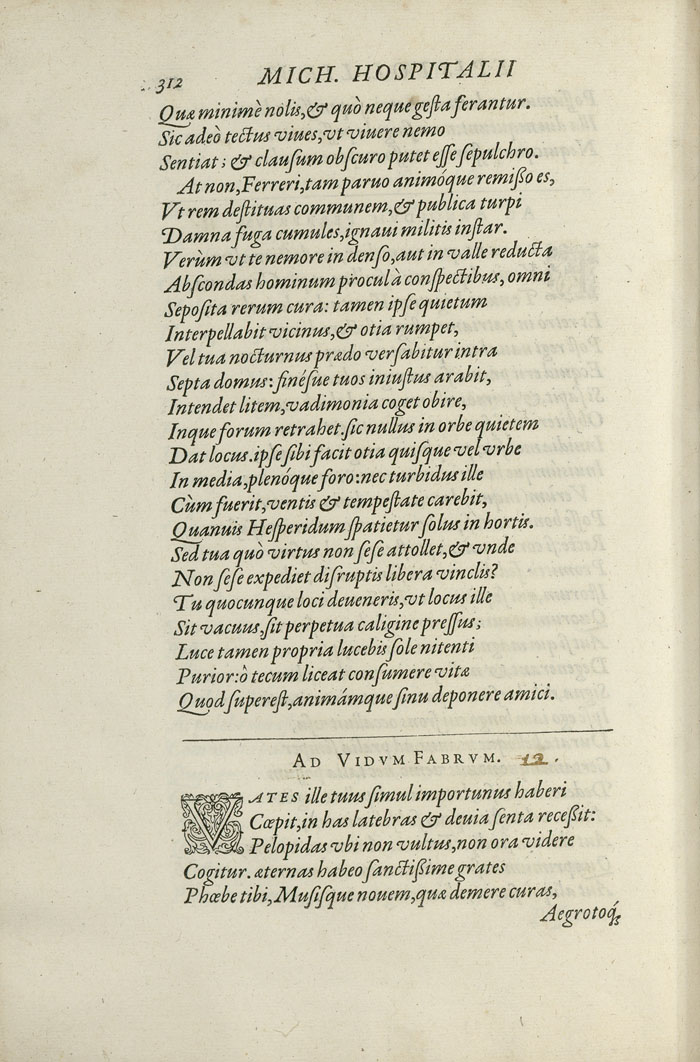 312 MICH. HOSPITALII
Quæ minimè nolis,& quò neque gesta ferantur.
Sic adeò tectus viues,vt viuere nemo
Sentiat; & clausum obscuro putet esse sepulchro.
At non,Ferreri,tam paruo animóque remißo es,
Vt rem destituas communem,& publica turpi
Damna fuga cumules,ignaui militis instar.
Verùm vt te nemore in denso,aut in valle reducta
Abscondas hominum procul à conspectibus, omni
Seposita rerum cura: tamen ipse quietum
Interpellabit vicinus,& otia rumpet,
Vel tua nocturnus prædo versabitur intra
Septa domus: finésue tuos iniustus arabit,
Intendet litem,vadimonia coget obire,
Inque forum retrahet.sic nullus in orbe quietem
Dat locus.ipse sibi facit otia quisque vel vrbe
In media,plenóque foro:nec turbidus ille
Cùm fuerit,ventis & tempestate carebit,
Quanuis Hesperidum spatietur solus in hortis.
Sed tua quò virtus non sese attollet,& vnde
Non sese expediet disruptis libera vinclis?
Tu quocunque loci deueneris,vt locus ille
Sit vacuus,sit perpetua caligine pressus;
Luce tamen propria lucebis sole nitenti
Purior:ò tecum liceat consumere vitæ
Quod superest,animámque sinu deponere amici.
AD VIDVM FABRVM. 12.
VATES ille tuus simul importunus haberi
Cœpit,in has latebras & deuia senta receßit:
Pelopidas vbi non vultus,non ora videre
Cogitur. æternas habeo sanctißime grates
Phœbe tibi,Musisque nouem,quæ demere curas,
Aegrotoq́;